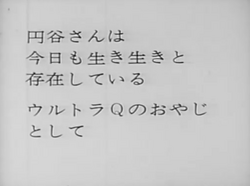 円谷さんは
今日も生き生きと
存在している
ウルトラQのおやじ
として